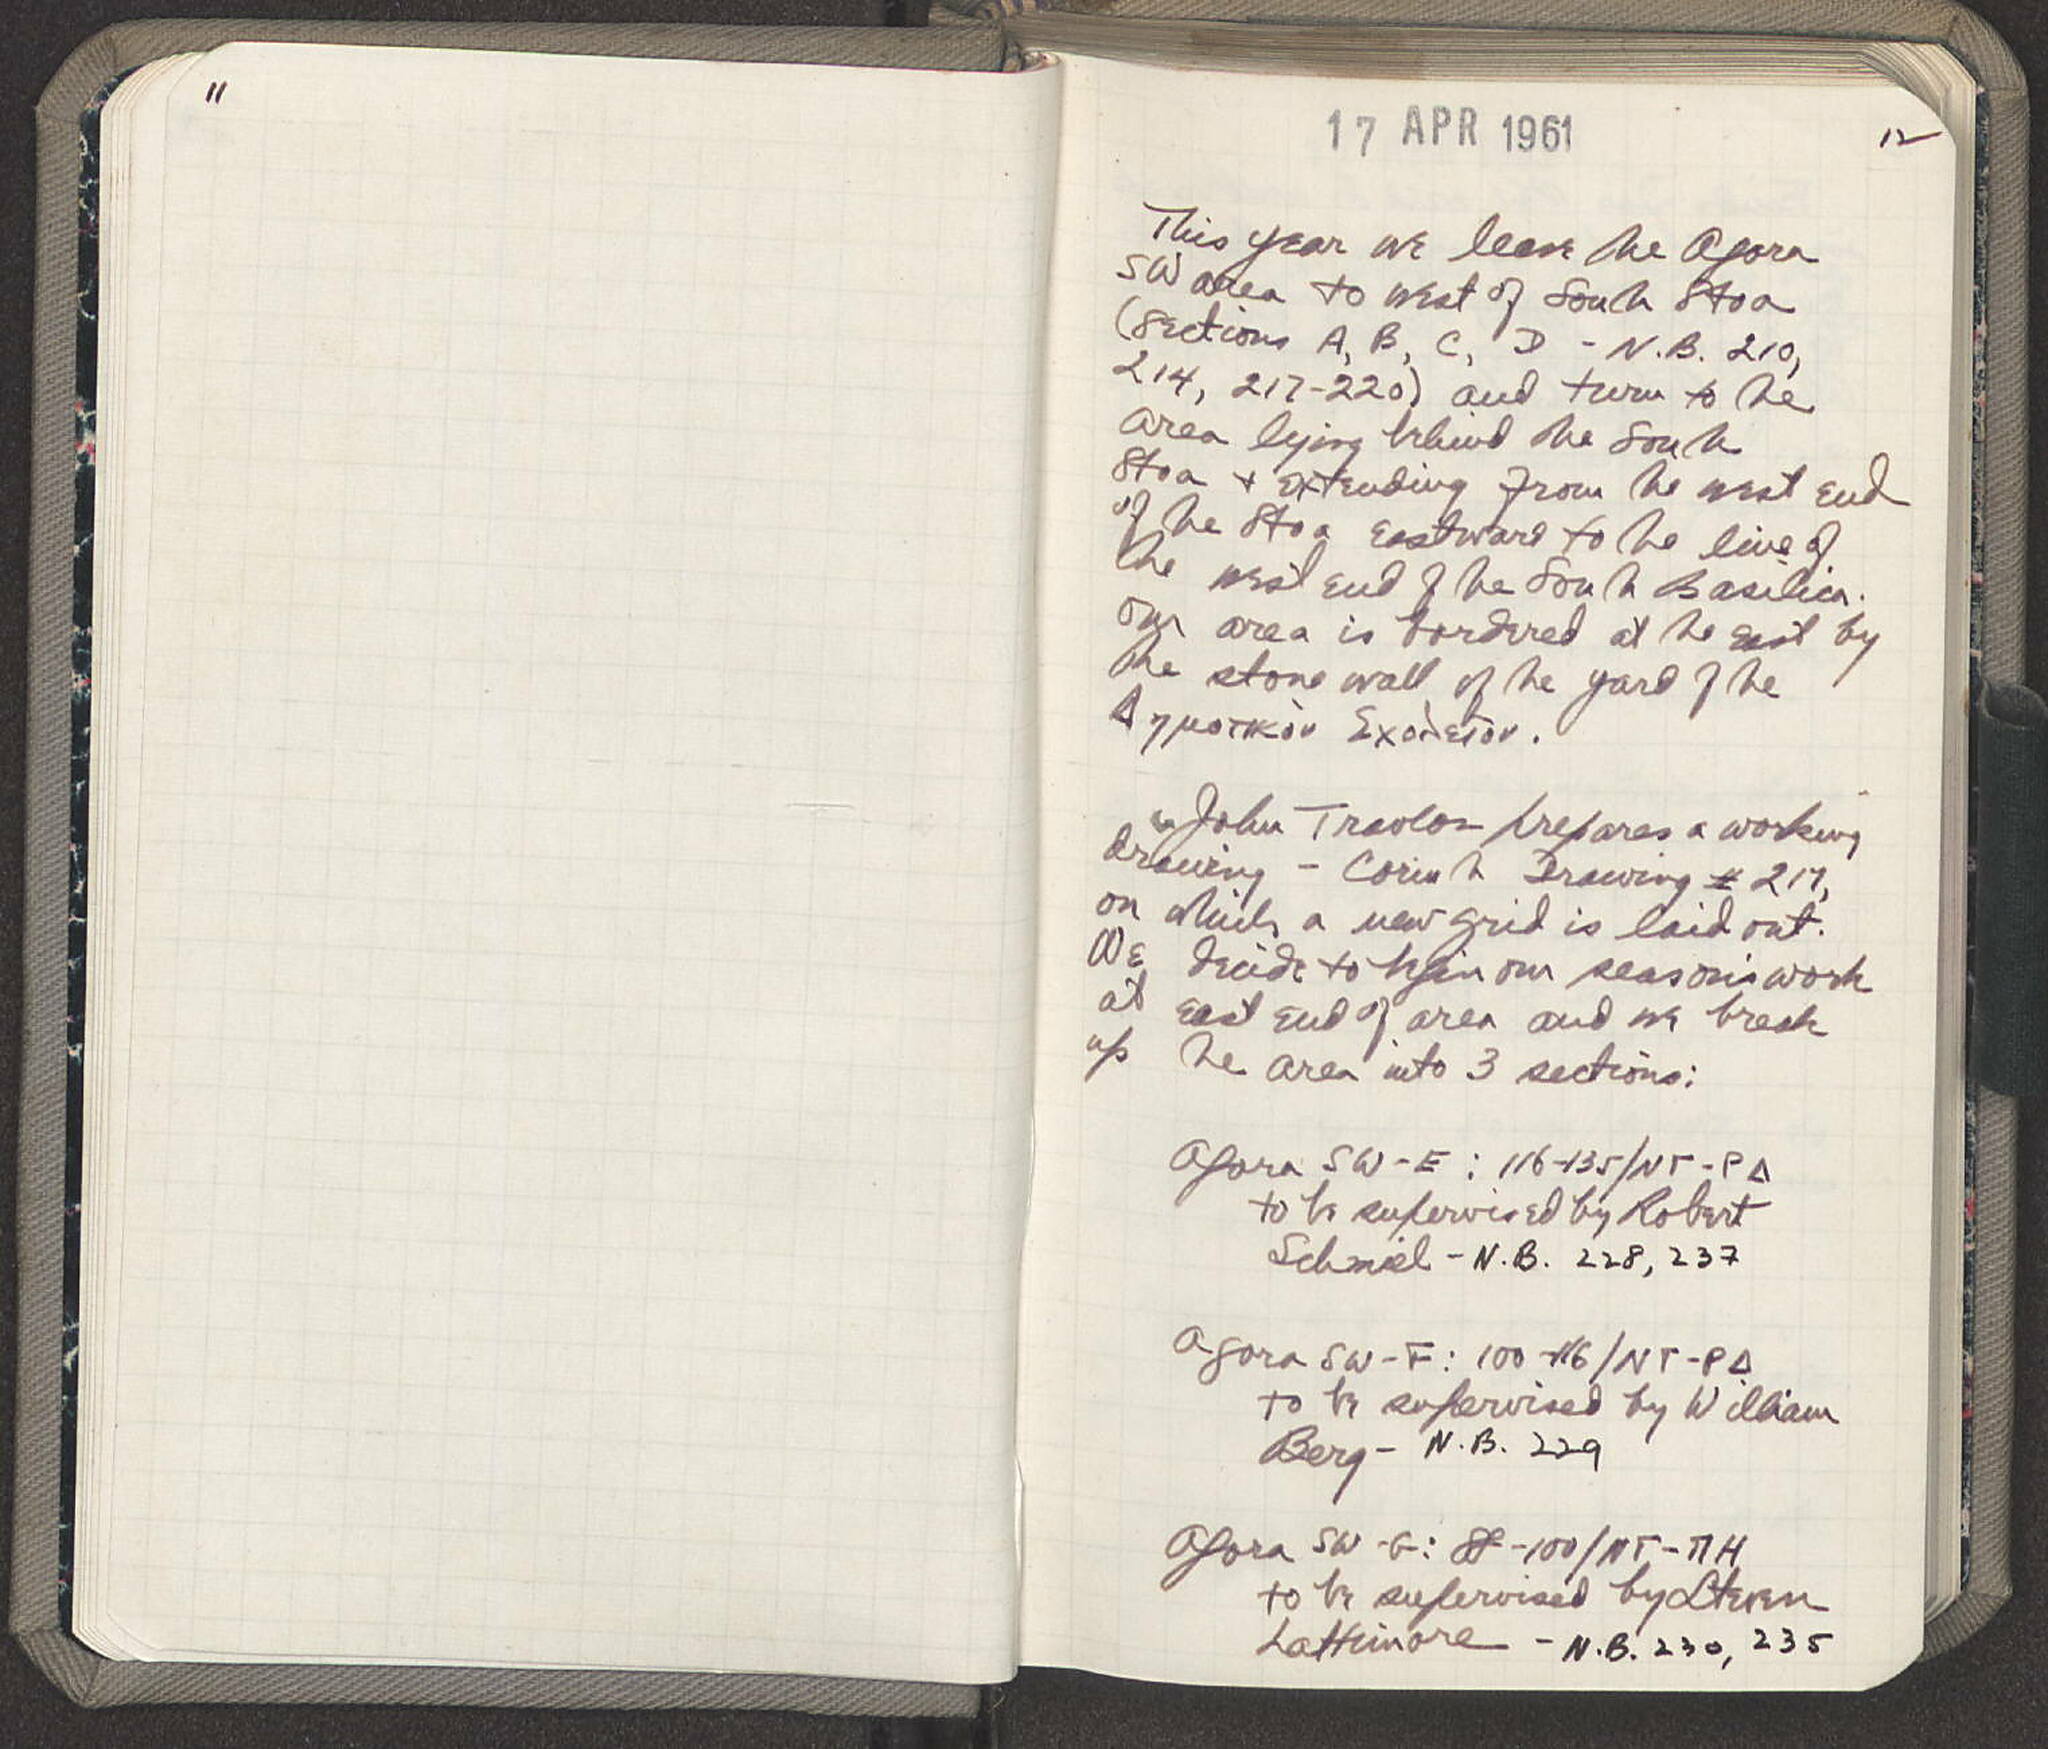 11
17 APR 1961
12
This year we leave the Agora
SW area to west of South Stoa
(Sections A, B, C, D - N.B. 210,
214, 217-220) and turn to the
area lying behind the South
Stoa + extending from the west end
of the Stoa eastward to the line of
the west end of the South Basilica.
Our area is bordered at the east by
the stone wall of the yard of the
Δημοτικόν Σχολεῖον.
John Travlos prepares a working
drawing - Corinth Drawing # 217,
on which a new grid is laid out.
We decide to begin our season's work
at east end of area and we break
up the area into 3 sections:
Agora SW-E: 116-135/ΝΓ-ΡΔ
to be supervised by Robert
Schmiel - N.B. 228, 237
Agora SW-F: 100-116/ΝΓ-ΡΔ
to be supervised by William
Berg - N.B. 229
Agora SW-G: -100/ΝΓ-ΠΗ
to be supervised by Steven
Lattimore - N.B. 230, 235